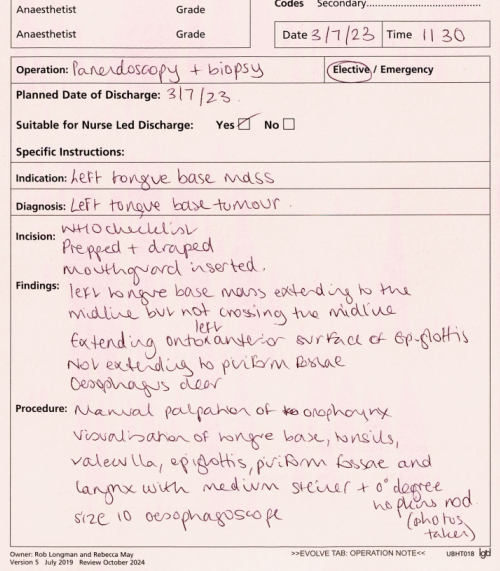 Codes Secondary
Anaesthetist Grade
Anaesthetist Grade
Date 3/7/23 Time 1130
Operation: Panendoscopy + biopsy Elective / Emergency
Planned Date of Discharge: 3/7/23.
Suitable for Nurse Led Discharge: Yes ☑ No ☐
Specific Instructions:
Indication: Left tongue base mass
Diagnosis: Left tongue base tumour.
Incision: WHO checklist
Prepped + draped
mouthguard inserted.
Findings: left tongue base mass extending to the
midline but not crossing the midline
Extending onto left anterior surface of epiglottis
Not extending to piriform fossae
Oesophagus clear
Procedure: Manual palpation of oropharynx
Visualisation of tongue base, tonsils,
valecula, epiglottis, piriform fossae and
larynx with medium steiner + 0° degree
hopkins rod
size 10 oesophagoscope (photos
taken)
Owner: Rob Longman and Rebecca May
Version 5 July 2019 Review October 2024
>>EVOLVE TAB: OPERATION NOTE<< UBHT018 lgd